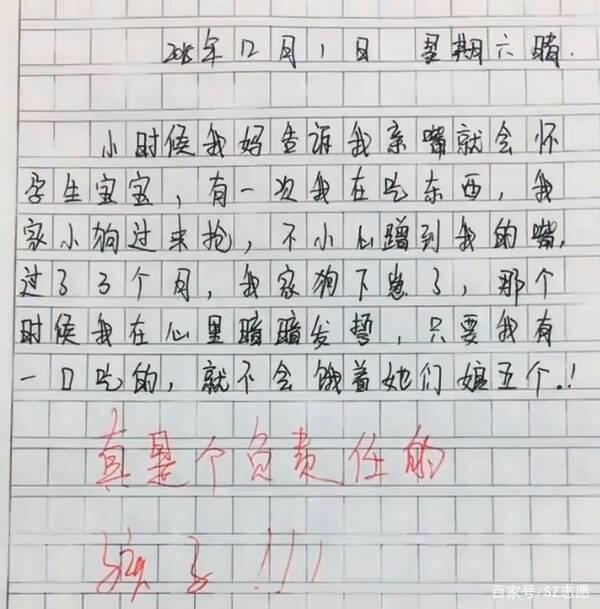 2018年12月1日 星期六 晴.
小时候我妈告诉我亲嘴就会怀
孕生宝宝,有一次我在吃东西,我
家小狗过来抢,不小心蹭到我的嘴.
过了3个月,我家狗下崽了,那个
时候我在心里暗暗发誓,只要我有
一口吃的,就不会饿着她们娘五个.!
真是个负责任的
孩子!!!
百家号/SZ志愿